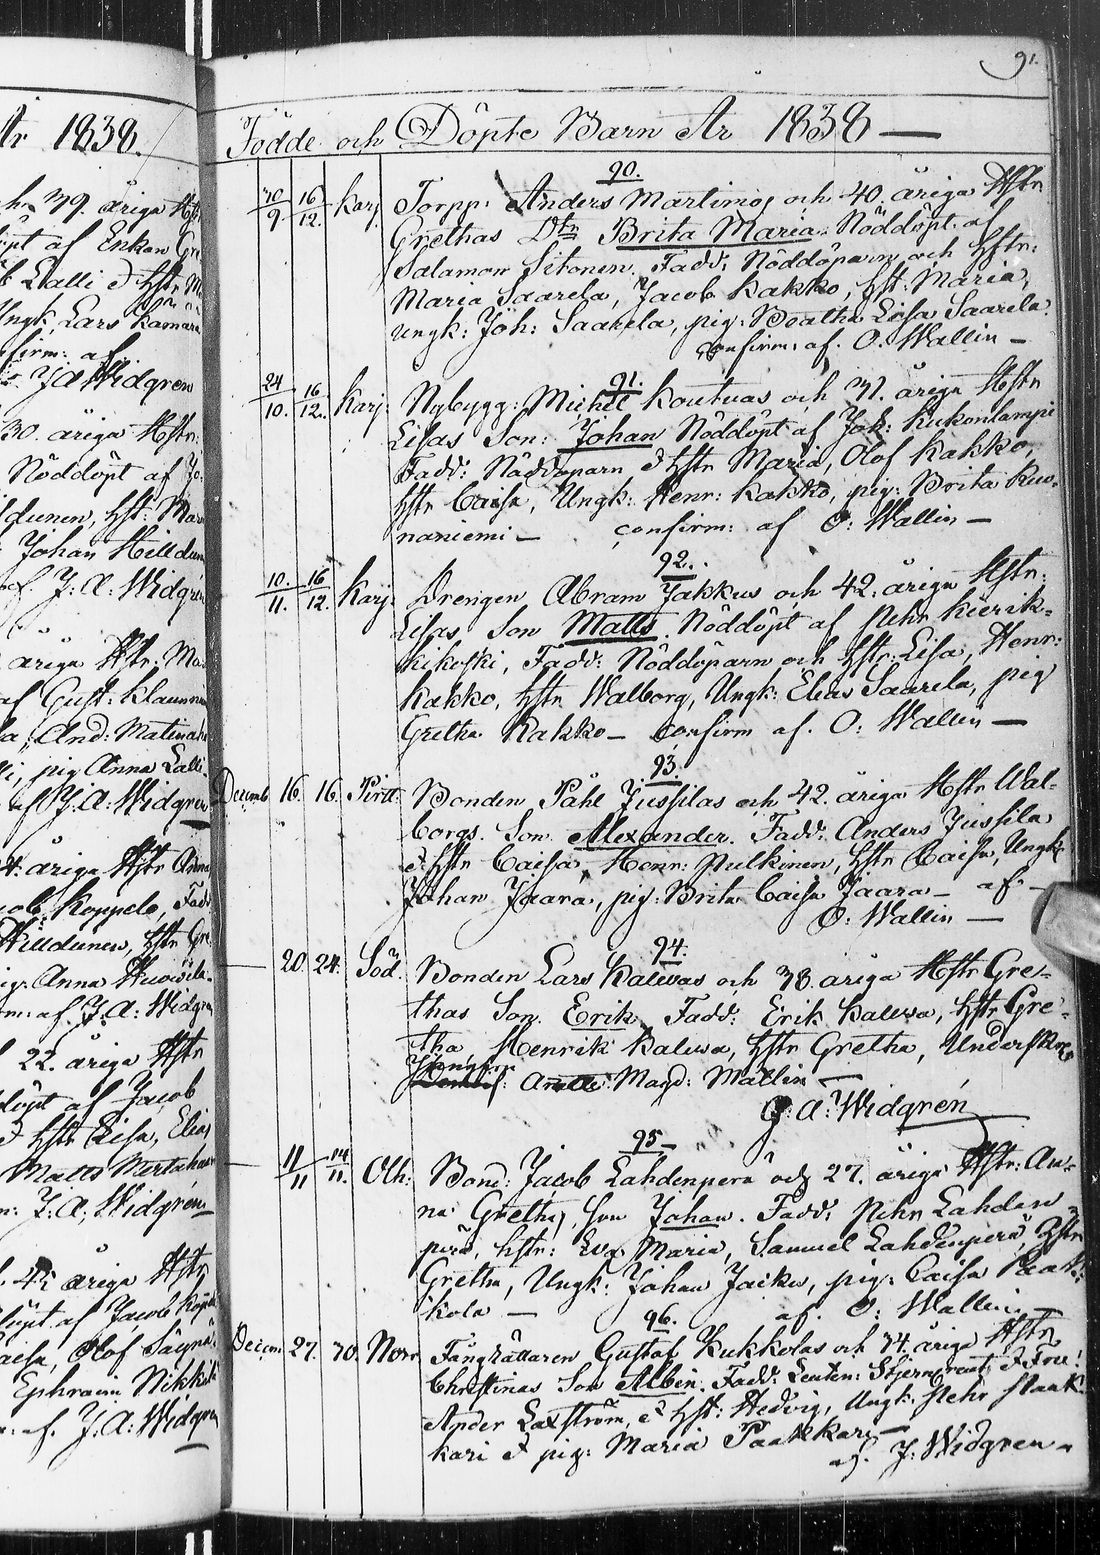 år 1838.
h. 39. åriga Hst
öpt af Enkan Gre
b Lalli & Hstr M
Ungk. Lars Kämärä
nfirm: af
J A Widgren
30. åriga Hstr:
Nöddöpt af Jo
ldunen, hst: Mar
Johan Helldun
af. J: A: Widgrén
åriga Hstr: Ma
af Gust: Klaunnu
la, And: Matinal
li, pig Anna Lalli
af J. A: Widgren
4: åriga Hstr Anna
cob: Koppelo, Fad
Willdunen, hstr Gre
pig: Anna
rm: af. J. A: Widgr
22. åriga Hstr
döpt af Jacob
& hstr Lisa, Elias
Matts Mertaka
m: J: A: Widgrén
45 åriga Hstr
döpt af Jacob Kop
Caisa, Olof Säynä
Ephraim Nikkil
m: af. J: A: Widgren
91.
Födde och Döpte Barn År 1838 —
90.
30/9 16/12. Karj. Torpp: Anders Martimos och 40. åriga Hstr
Grethas Dtr Brita Maria. Nöddöpt. af
Salamon Sitonen. Fadd: Nöddöparn och hstr:
Maria Saarela, Jacob Kakko, hst: Maria,
Ungk: Joh: Saarela, pig: Beatha Lisa Saarela.
Confirm: af. O. Wallin —
91.
24/10. 16/12. Karj: Nybygg: Michel Koutuas och 31. åriga Hstr
Lisas Son: Johan Nöddöpt af Joh: Kukonlampi
Fadd: Nöddöparn & hstr Maria, Olof Kakko,
hstr Caisa, Ungk: Henr: Kakko, pig: Brita Kus-
naniemi — confirm: af O: Wallin —
92.
10./11. 16/12. Karj: Drengen Abram Jakkus och 42. åriga Hstr:
Lisas Son Matts. Nöddöpt af Pehr Kierik-
kikoski, Fadd: Nöddöparn och hstr: Lisa, Henr:
Kakko, hstr Walborg, Ungk: Elias Saarela, pig
Gretha Kakko — Confirm af. O: Wallin —
93.
Decemb 16. 16. Pirtt: Bonden Påhl Jussilas och 42. åriga Hstr Wal-
borgs Son Alexander. Fadd: Anders Jussila
& hstr Caisa, Henr: Pulkinen, hstr Caisa, Ungk:
Johan Jaara, pig: Brita Caisa Jaara — af —
O: Wallin —
94.
— 20. 24. Söd. Bonden Lars Kalwas och 38. åriga Hstr Gre-
thas Son. Erik Fadd: Erik Kalwa, hstr Gre-
tha, Henrik Kalwa, hstr Gretha,
Magd: Mallin —
J. A: Widgrén
95 —
— 11/11 14/11. Olk: Bond: Jacob Lahdenperä och 27. åriga Hstr: An-
na Grethas, son Johan. Fadd: Pehr Lahden-
perä, hstr: Eva Maria, Samuel Lahdenperä, hstr
Gretha, Ungk: Johan Jaiku, pig: Caisa Paak-
kola — af. O: Wallin —
96.
Decem: 27. 30. Norr. Fångrättaren Gustaf Kukkolas och 34. åriga Hstr
Christinas Son Albin. Fadd: Leuten: Stjerncreutz & Fru:
Ander Laxström, & hst: Hedvig, Ungk: Pehr Paak-
kari & pig: Maria Paakkari —
af. J: Widgren —